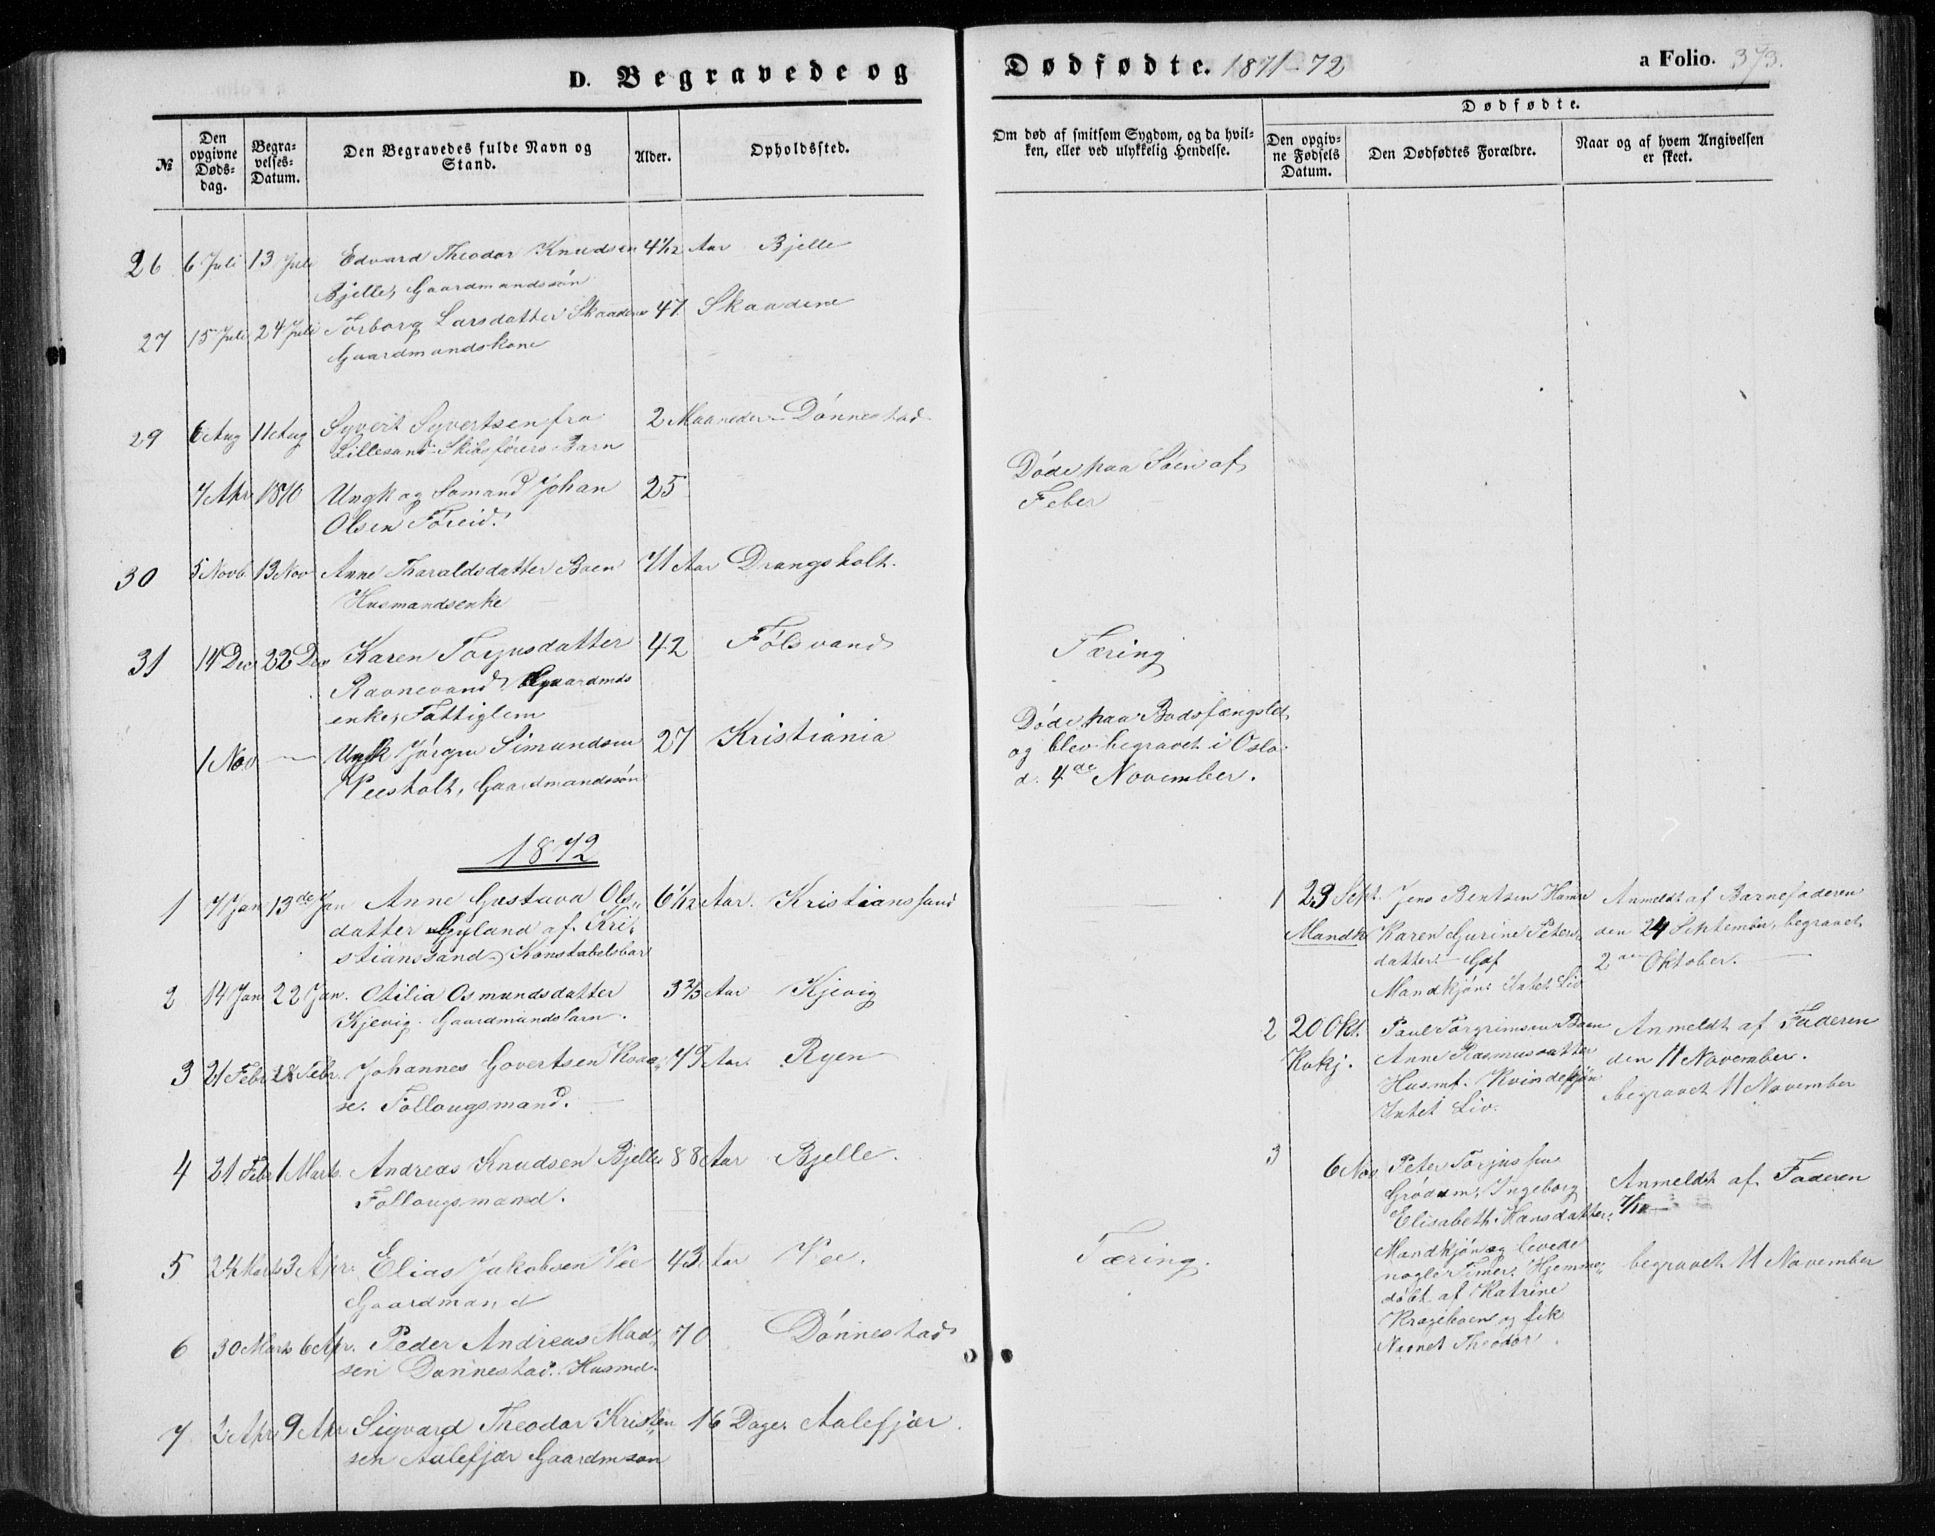 D. Begravede og Dødfødte. 1871-72 a Folio. 373.
№
Den opgivne Døds-dag.
Begra-velses-Datum.
Den Begravedes fulde Navn og Stand.
Alder.
Opholdssted.
Om død af smitsom Sygdom, og da hvil-
ken, eller ved ulykkelig Hendelse.
Dødfødte.
Den opgiv-ne Fødsels Datum.
Den Dødfødtes Forældre.
Naar og af hvem Angivelsen er skeet.
26 6 Juli 13 Juli Edvard Theodor Knudsen 4 1/12 Aar Bjelle
Bjelle, Gaardmandssøn
27 15 Juli 24 Juli Torborg Larsdatter Skaadene 47 Skaadene
Gaardmandskone
29 6 Aug 11 Aug Syvert Syvertsen fra 2 Maaneder Dønnestad
Lillesand Skibsførers Barn
7 Apr 1870 Ungk og Sømand Johan 25 Døde paa Søen af
Olsen Foreid. Feber
30 5 Novb 13 Nov Anne Tharaldsdatter Boen 71 Aar Drangsholt.
Husmandsenke
31 14 Dec 22 Dec Karen Torjusdatter 42 Følsvand Tæring
Ravnevand, Gaardmds
enke, Fattiglem
1 Nov — Ungk Jørgen Simundsen 27 Kristiania Døde paa Bodsfængslet,
Veesholt, Gaardmandssøn og blev begravet i Oslo
d. 4de November.
1872
1 7 Jan 13de Jan Anne Gustava Ols- 6 1/12 Aar. Kristianssand
datter Gyland af Kri-
stianssand, Konstabelsbar
2 14 Jan 22 Jan. Otilia Osmundsdatter 3 2/3 Aar Kjevig
Kjevig. Gaardmandsbarn.
3 21 Febr 28 Febr. Johannes Govertsen Kaaa- 79 Aar. Ryen
se. Follougsmand.
4 21 Febr 1 Marts. Andreas Knudsen Bjelle 88 Aar Bjelle.
Follougsmand.
5 24 Marts 3 Apr. Elias Jakobsen Vee 43 Aar Vee. Tæring.
Gaardmand
6 30 Marts 6 Apr. Peder Andreas Mad- 70 Dønnestad
sen Dønnestad. Husmd.
7 2 Apr 9 Apr Sigvard Theodor Kristen 16 Dage. Aalefjær.
sen Aalefjær Gaardmsøn
1 23 Sept. Jens Bentsen Hamre Anmeldt af Barnefaderen
Mandk Karen Gurine Peters- den 24 September, begravet
datter. Gaf 2den Oktober.
Mandkjøn. Intet Liv
2 20 Okt. Paul Torgrimsen Boen Anmeldt af Faderen
Kvkj. Anne Rasmusdatter den 11 November.
Husmf. Kvindekjøn begravet 11 November
Intet Liv.
3 6 Nov Peter Torjussen
Grødum, Ingeborg Anmeldt af Faderen
Elisabeth Hansdatter. 7/11
Mandkjøn og levede
nogle Timer. Hjemme- begravet 11 November
døbt af Katrine
Krageboen og fik
Navnet Theodor.